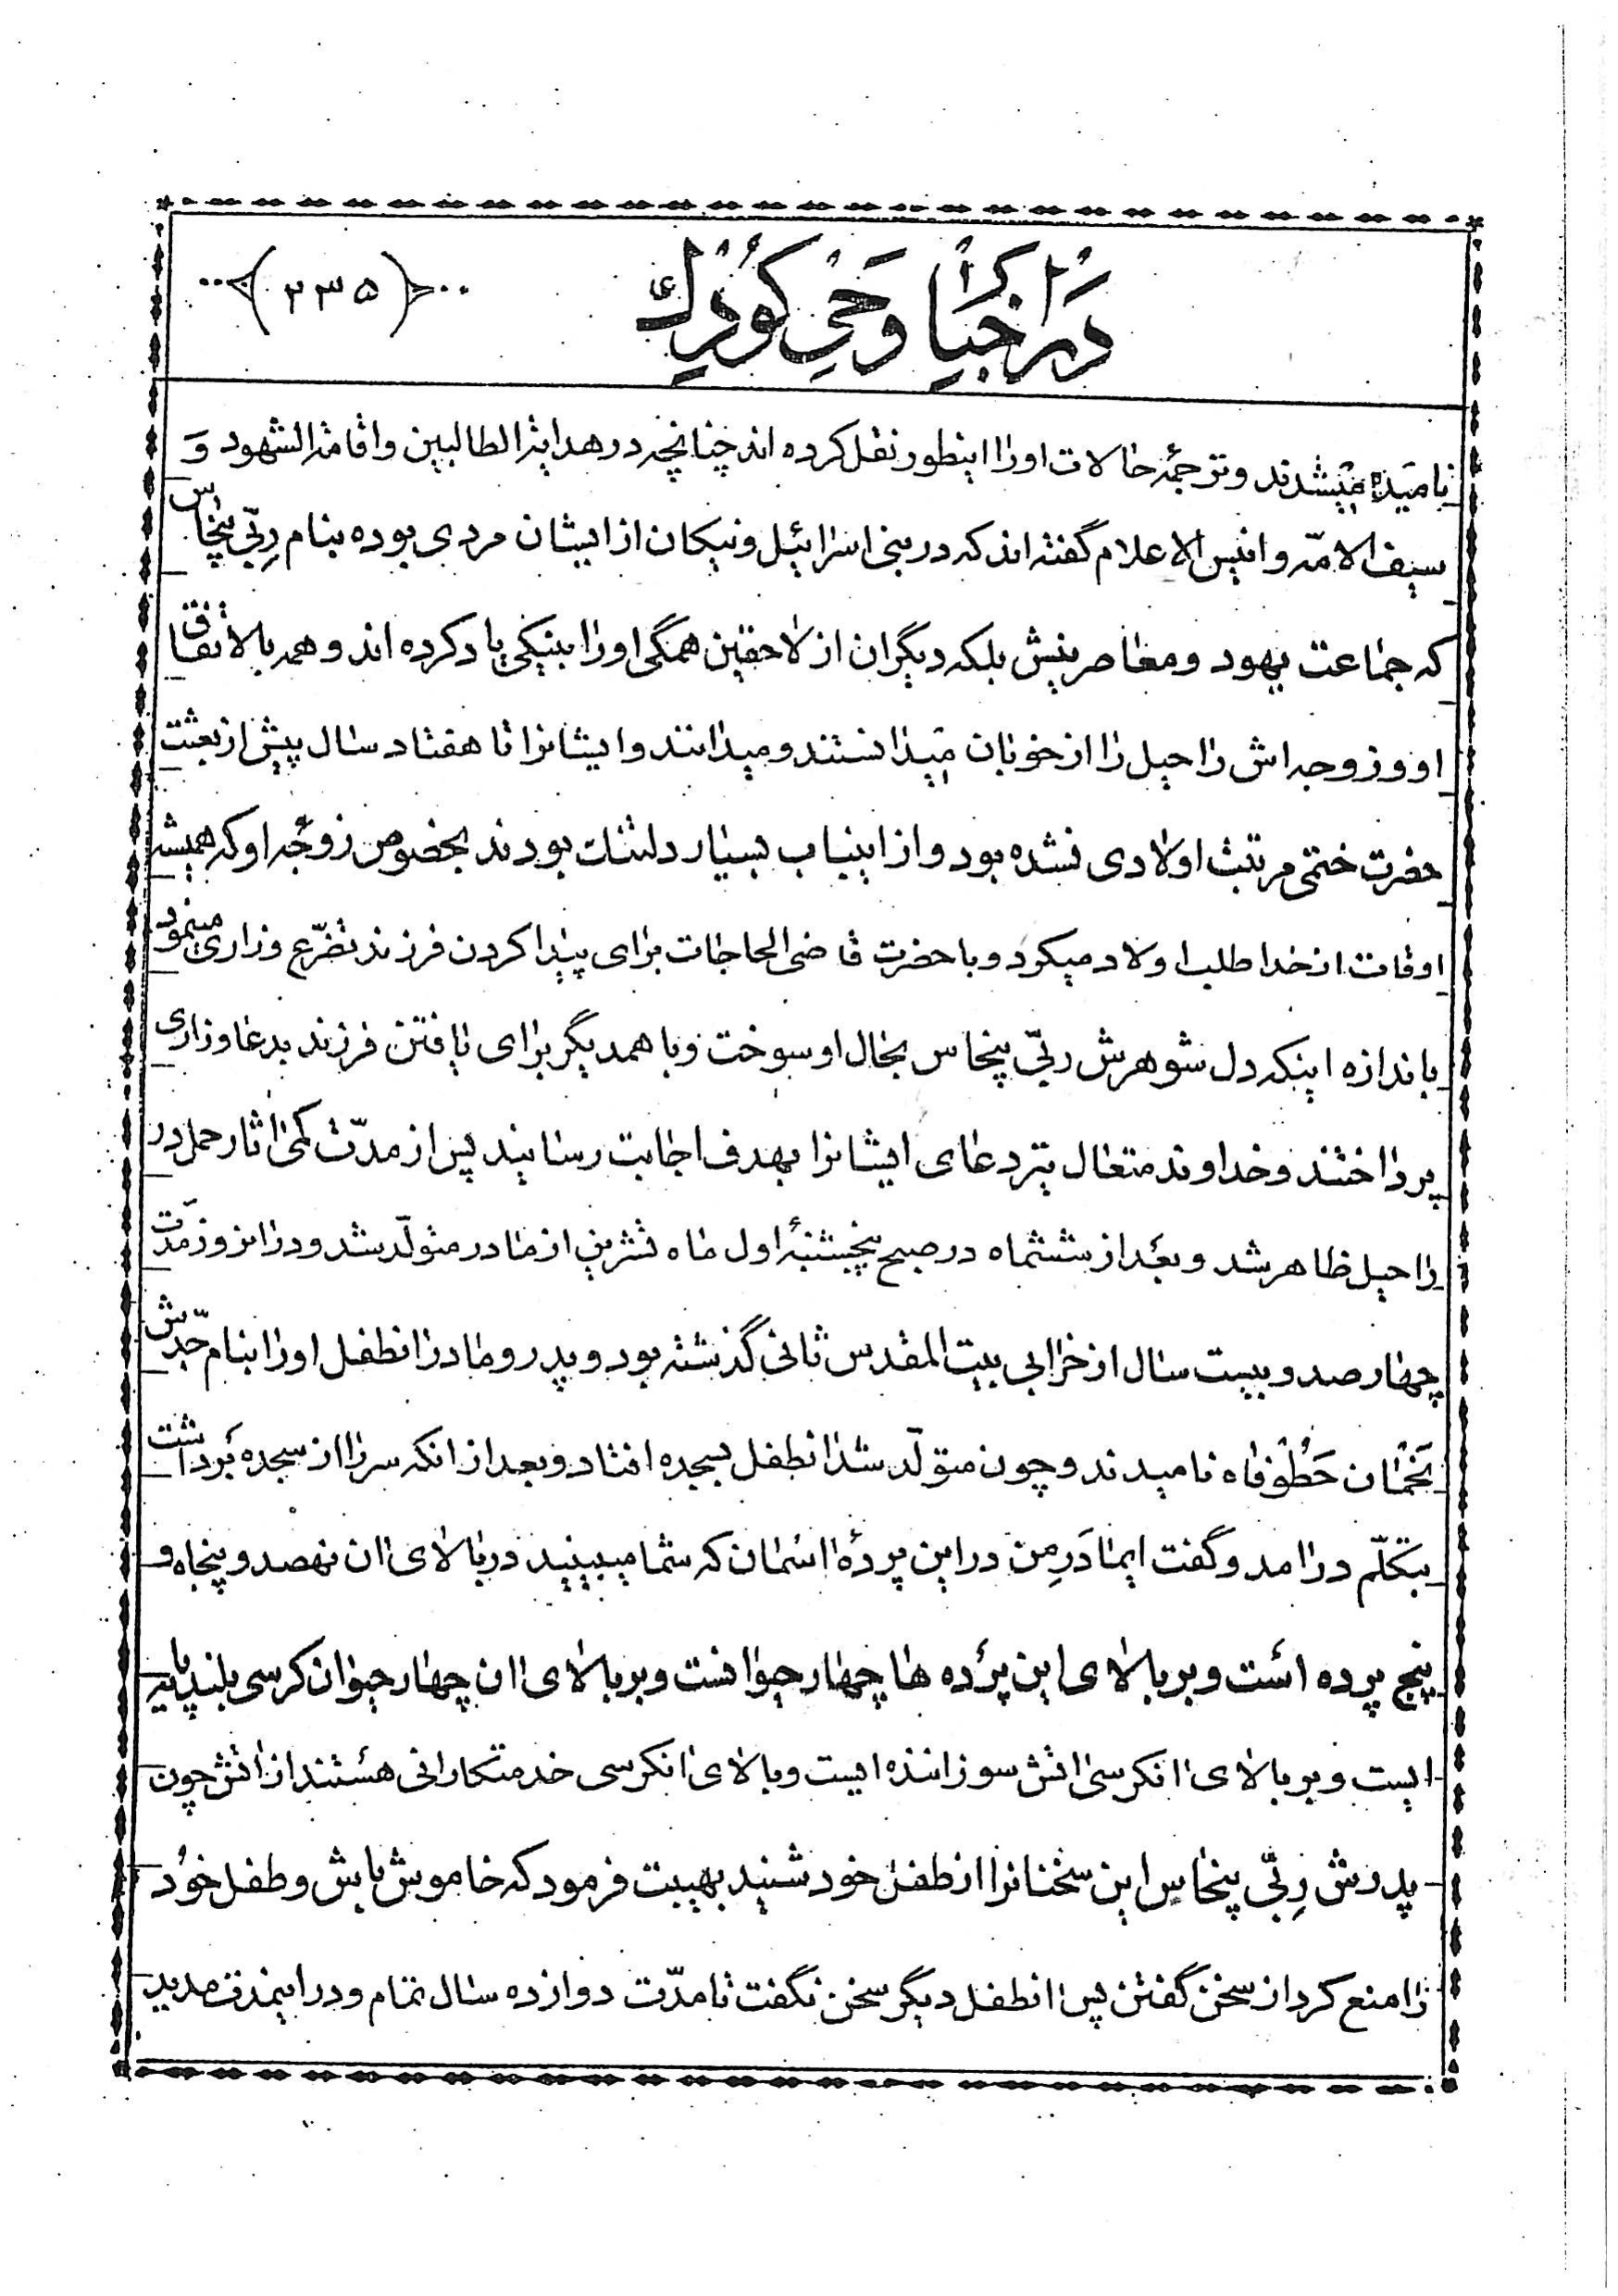 در اخبار وحی کودک
(۲۳۵)
نامیده میشدند و ترجمهٔ حالات او را اینطور نقل کرده اند چنانچه در هدایة الطالبین و اقامة الشهود و
سیف الامّه و انیس الاعلام گفته اند که در بنی اسرائیل و نیکان از ایشان مردی بوده بنام رِبّی پنحاس
که جماعت یهود و معاصرینش بلکه دیگران از لاحقین همگی او را بنیکی یاد کرده اند و همه بالاتفاق
او و زوجه اش راحیل را از خوبان میدانستند و میدانند و ایشانرا تا هفتاد سال پیش از بعثت
حضرت ختمی مرتبت اولادی نشده بود و از اینباب بسیار دلتنک بودند بخصوص زوجهٔ او که همیشه
اوقات از خدا طلب اولاد میکرد و با حضرت قاضی الحاجات برای پیدا کردن فرزند تضرّع و زاری مینمود
باندازه اینکه دل شوهرش ربّی پنحاس بحال او سوخت و با همدیگر برای یافتن فرزند بدعا و زاری
پرداختند و خداوند متعال تیر دعای ایشانرا بهدف اجابت رسانید پس از مدّت کمی اثار حمل در
راحیل ظاهر شد و بعد از ششماه در صبح پنجشنبهٔ اول ماه تشرین از مادر متولّد شد و در انروز مدّت
چهار صد و بیست سال از خرابی بیت المقدس ثانی گذشته بود و پدر و مادر انطفل او را بنام جدّش
نَحْمَان حَطُوفاه نامیدند و چون متولّد شد انطفل بسجده افتاد و بعد از انکه سر را از سجده برداشت
بتکلّم در امد و گفت ایمادَرِ من در این پردهٔ اسمان که شما میبینید در بالای ان نهصد و پنجاه و
پنج پرده است و بر بالای این پرده ها چهار حیوانست و بر بالای ان چهار حیوان کرسی بلند پایه
ایست و بر بالای انکرسی اتش سوزاننده ایست و بالای انکرسی خدمتکارانی هستند از اتش چون
پدرش رِبّی پنحاس این سخنانرا از طفل خود شنید بهیبت فرمود که خاموش باش و طفل خود
را منع کرد از سخن گفتن پس انطفل دیگر سخن نگفت تا مدّت دوازده سال تمام و در اینمدت مدید